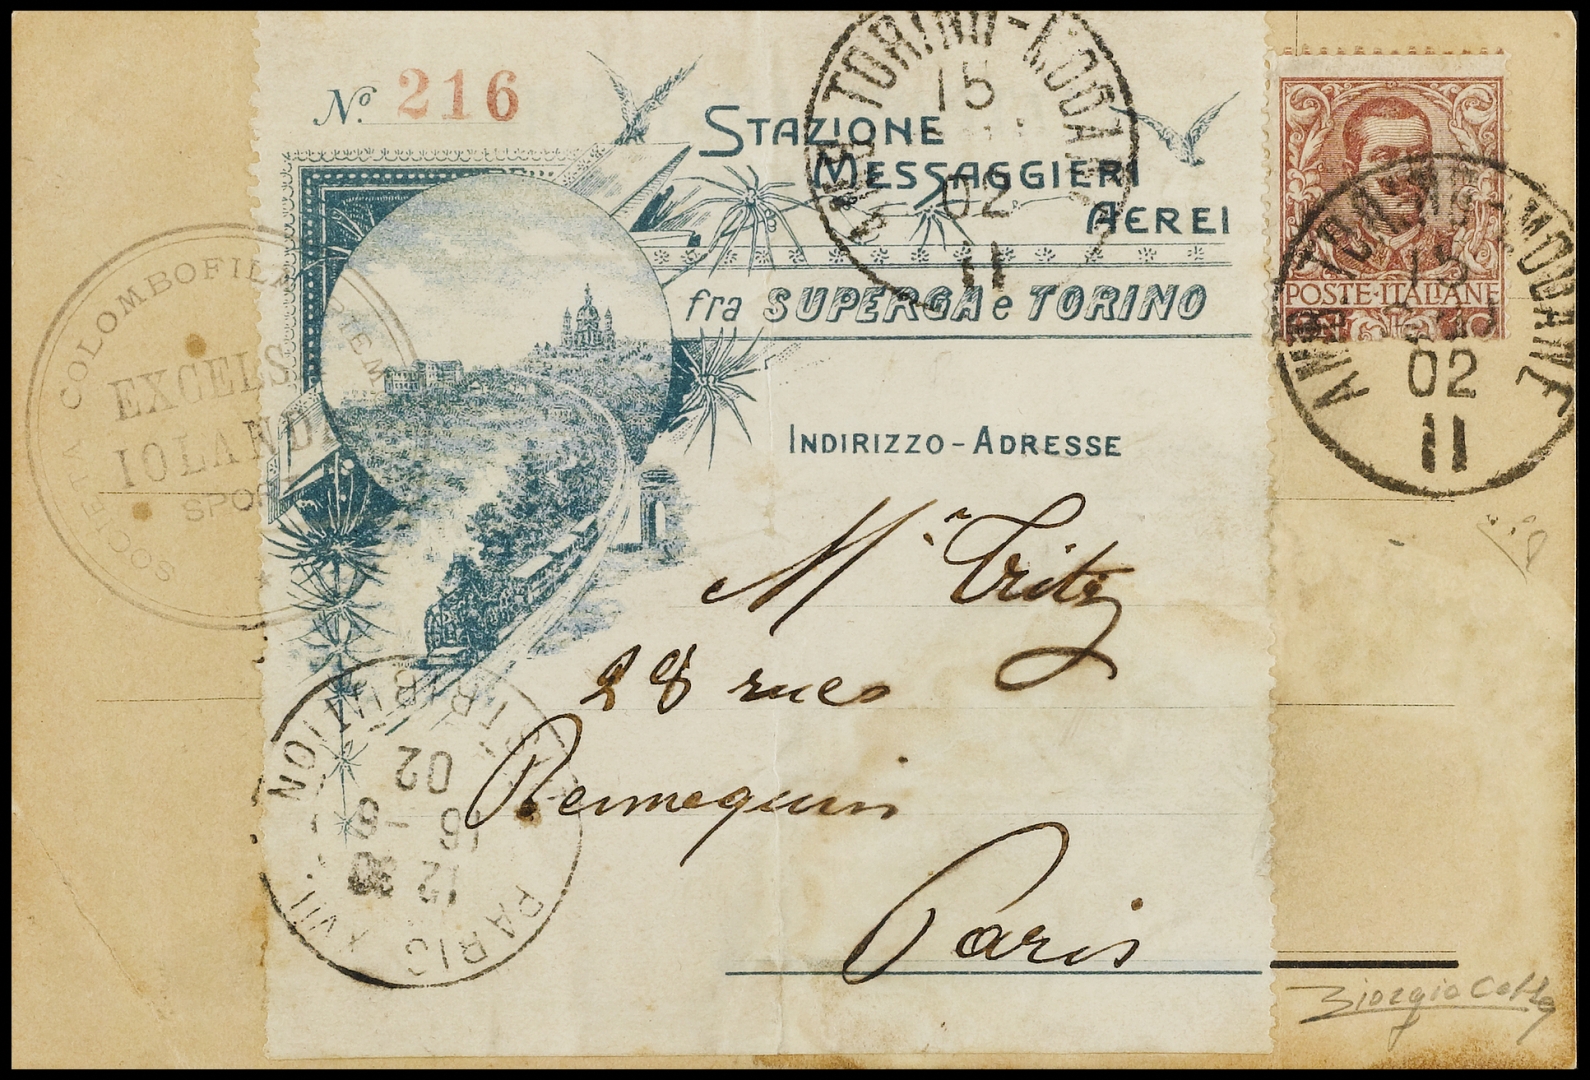 No. 216
STAZIONE
MESSAGGIERI
AEREI
fra SUPERGA e TORINO
INDIRIZZO-ADRESSE
Mr Tritz
28 rue
Rennequin
Paris
POSTE·ITALIANE
AMB. TORINO-MODANE
15
02
11
AMB. TORINO-MODANE
15
02
11
SOCIETA COLOMBOFILA
EXCELS
IOLANDA
SPORT
PARIS XVII
DISTRIBUTION
12 30
16 - 6
02